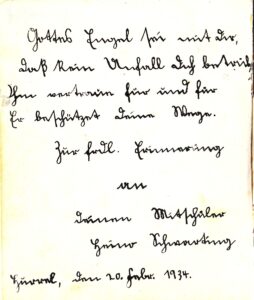 Gottes Engel sei mit dir,
daß kein Unfall dich betrübt
Ihm vertraue für und für
Er beschützet deine Wege.
Zur frdl. Erinnerung
an
deinen Mitschüler
Heino Schwarting
Hurrel, den 20. Febr. 1934.